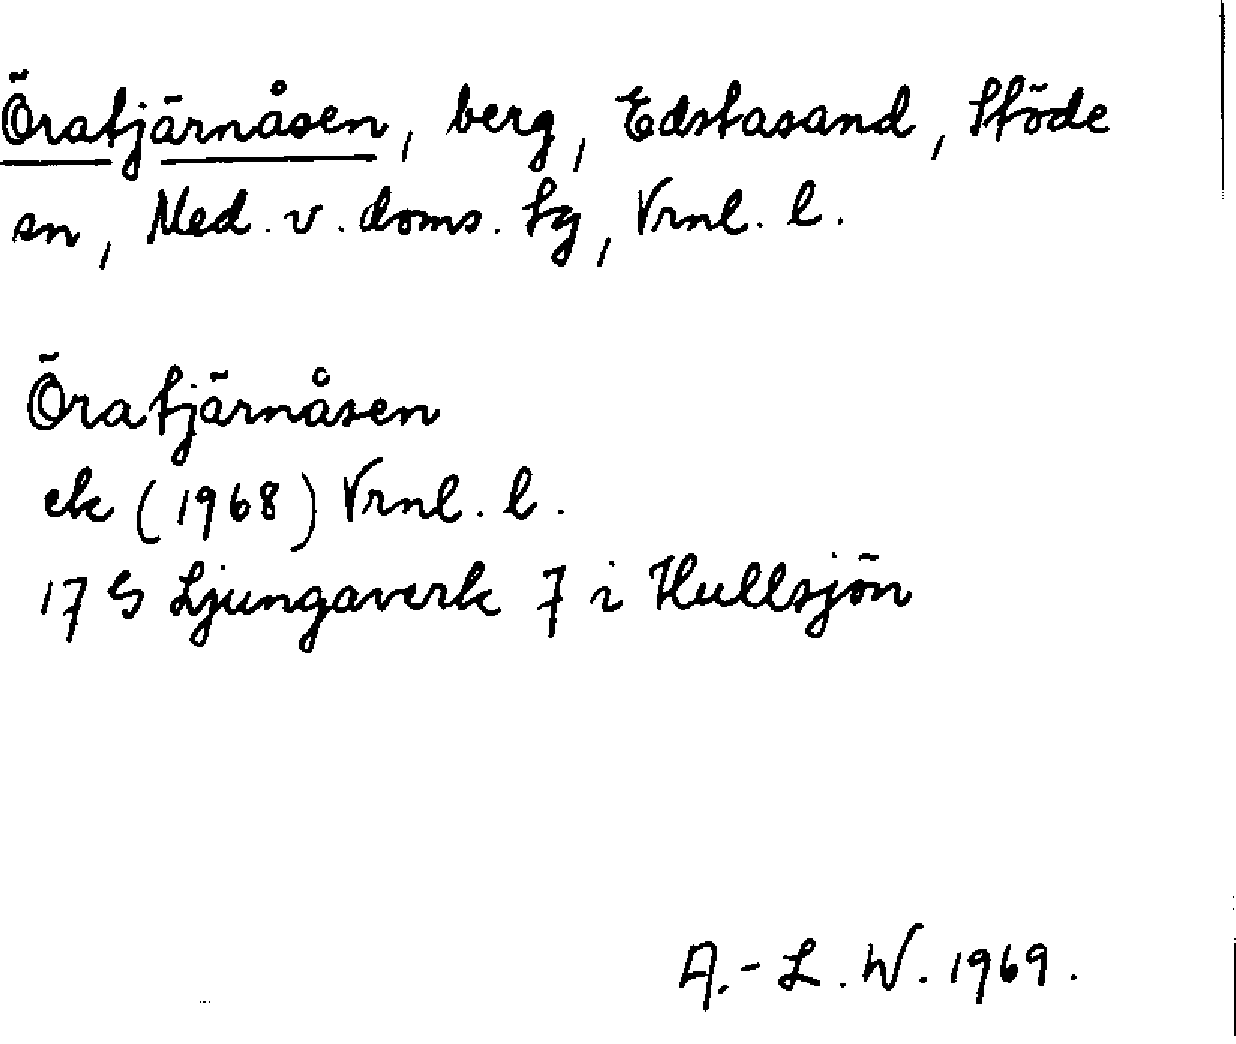 Öratjärnåsen, berg, Edstasand, Stöde
sn, Med. v. doms. tg, Vrnl. l.
Öratjärnåsen
ek (1968) Vrnl. l.
17 G Ljungaverk 7 i Hullsjön
A.-L. W. 1969.